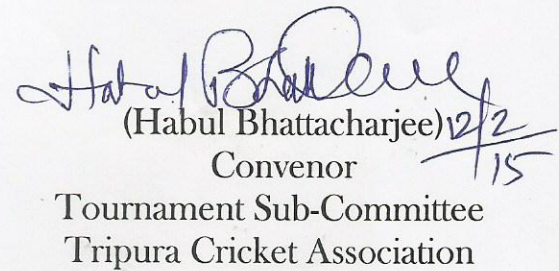 Habul Bhattacharjee
(Habul Bhattacharjee) 12/2/15
Convenor
Tournament Sub-Committee
Tripura Cricket Association